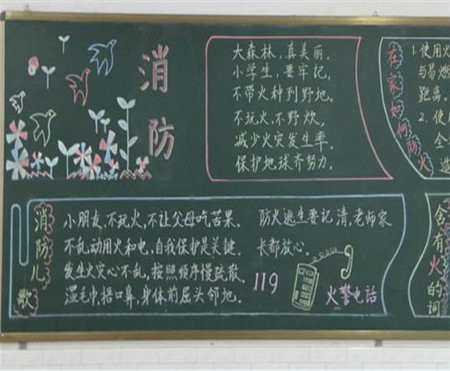 消防
大森林,真美丽.
小学生,要牢记,
不带火种到野地.
不玩火,不野炊,
减少火灾发生率.
保护地球齐努力.
在家如何防火
1.使用火
与易燃
距离.
2.使
全
消防儿歌
小朋友,不玩火,不让父母吃苦果.
不乱动用火和电,自我保护是关键.
发生火灾心不乱,按照顺序慢疏散.
湿毛巾捂口鼻,身体前屈头邻地.
防火逃生要记清,老师家
长都放心.
119
火警电话
含有火的词